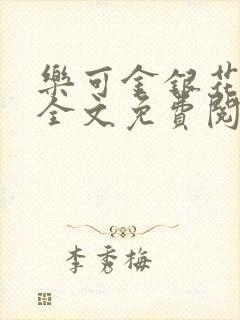 樂可金銀花
全文免費閱
李秀梅